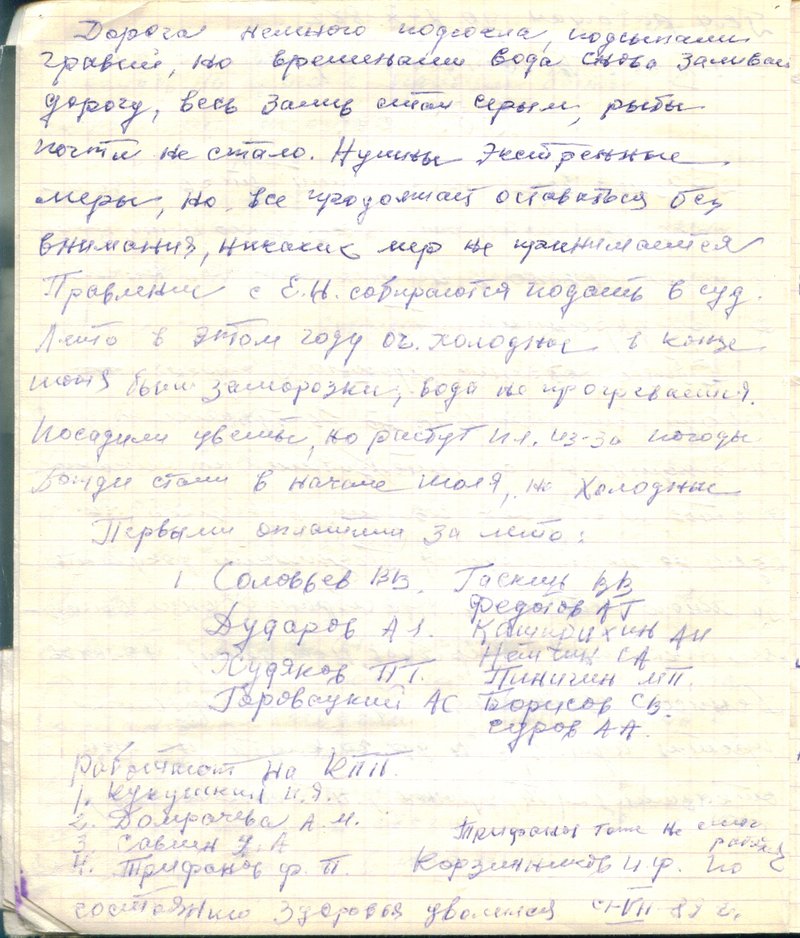 Дорога немного подсохла, подсыпали
гравий, но временами вода снова заливает
дорогу, весь залив стал серым, рыбы
почти не стало. Нужны экстренные
меры, но все продолжает оставаться без
внимания, никаких мер не принимается
Правление с Е.Н. собираются подать в суд.
Лето в этом году оч. холодное в конце
июня были заморозки, вода не прогревается.
Посадили цветы, но растут пл. из-за погоды
Дожди стали в начале июля, но холодные
Первыми оплатили за лето:
1 Соловьев ВВ. Гаскиць ВВ
Федотов АГ
Дударов А.Я. Каширихин АИ
Немчин ГА
Худяков П.Г. Пиничин МП.
Боровацкий АС Борисов СВ.
Суров А.А.
Работают на КПП.
1. Кукушкин И.Я.
2. Домрачева А.М.
3. Савин У.А
Трифанов тоже не смог
работать
4. Трифанов Ф.П. Корзинников И.Ф. по
состоянию здоровья уволился VII 89 г.